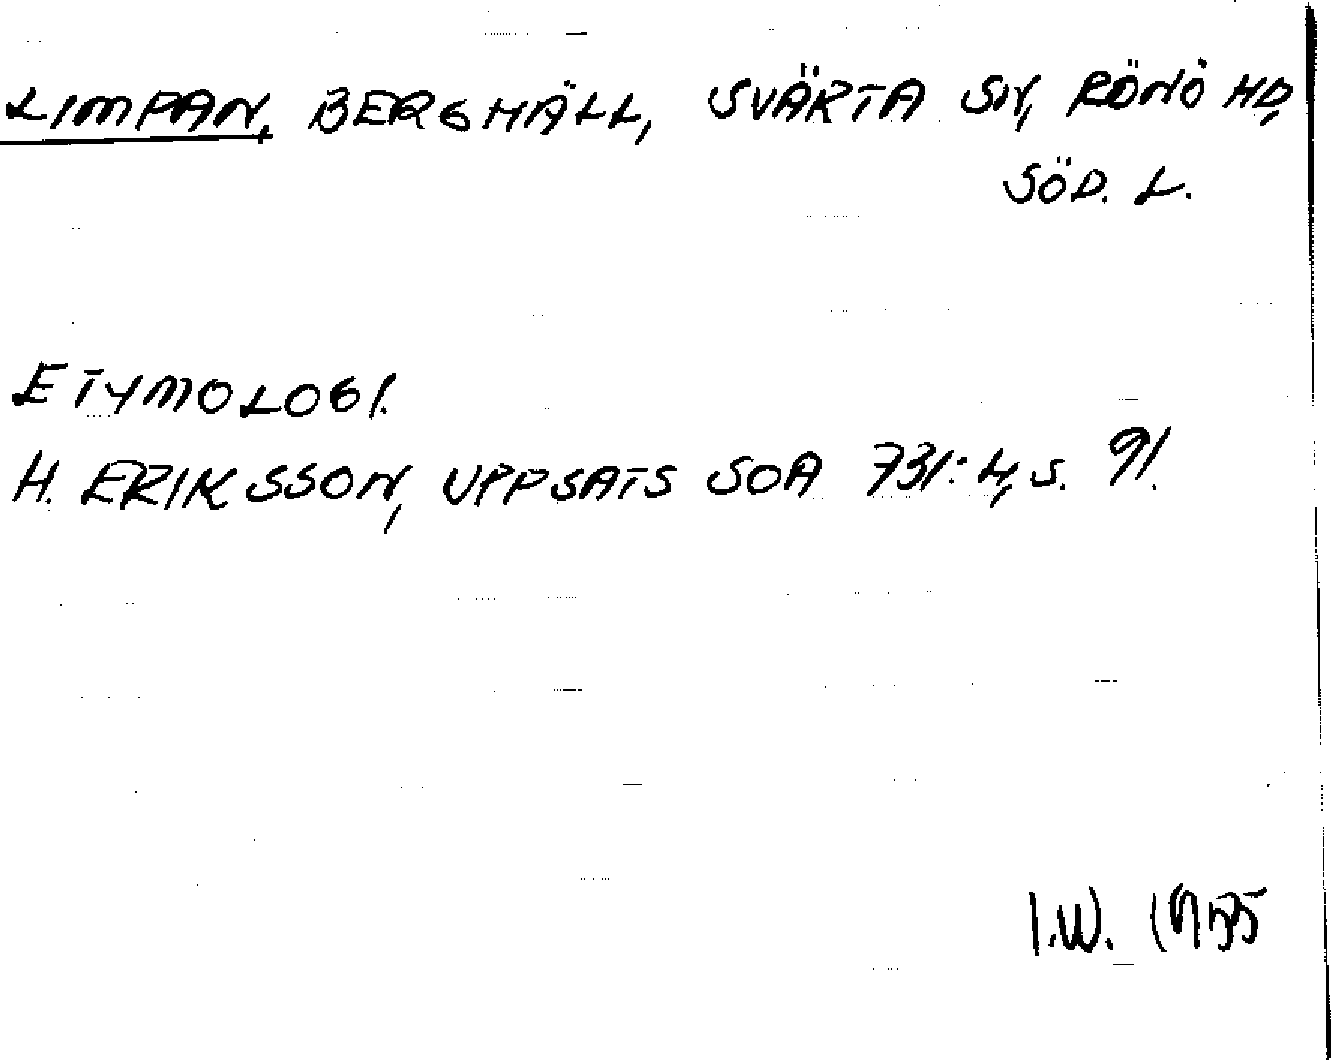 LIMPAN, BERGHÄLL, SVÄRTA SN, RÖNÖ HD,
SÖD. L.
ETYMOLOGI.
H. ERIKSSON, UPPSATS SOA 731:4, s. 91.
I.W.